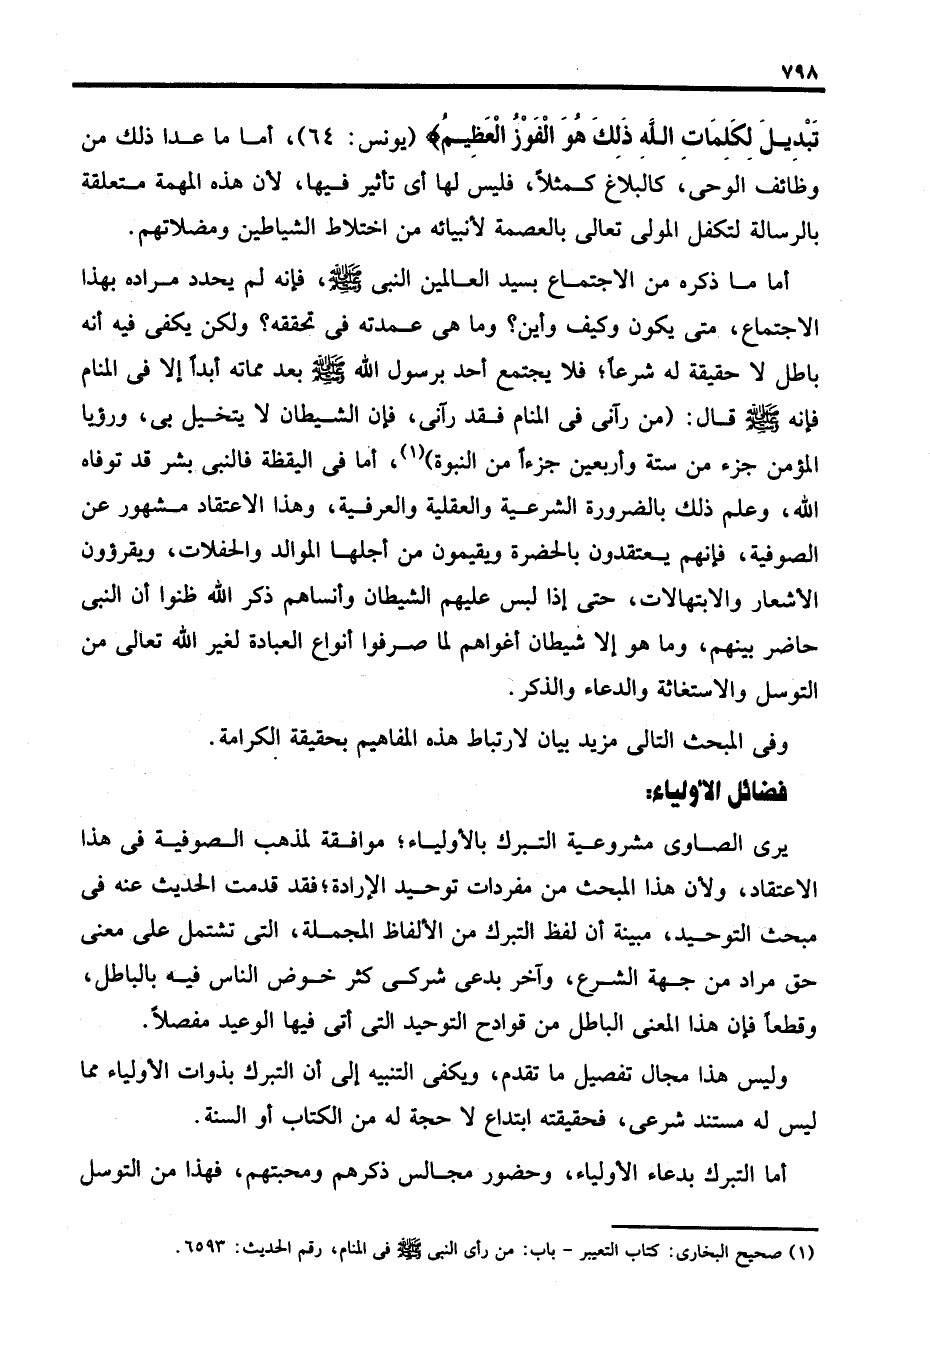 ٧٩٨
تَبْدِيلَ لِكَلِمَاتِ اللَّهِ ذَلِكَ هُوَ الْفَوْزُ الْعَظِيمُ﴾ (يونس: ٦٤)، أما ما عدا ذلك من
وظائف الوحى، كالبلاغ كمثلاً، فليس لها أى تأثير فيها، لأن هذه المهمة متعلقة
بالرسالة لتكفل المولى تعالى بالعصمة لأنبيائه من اختلاط الشياطين ومضلاتهم.
أما ما ذكره من الاجتماع بسيد العالمين النبى ﷺ، فإنه لم يحدد مراده بهذا
الاجتماع، متى يكون وكيف وأين؟ وما هى عمدته فى تحققه؟ ولكن يكفى فيه أنه
باطل لا حقيقة له شرعاً؛ فلا يجتمع أحد برسول الله ﷺ بعد مماته أبداً إلا فى المنام
فإنه ﷺ قال: (من رآنى فى المنام فقد رآنى، فإن الشيطان لا يتخيل بى، ورؤيا
المؤمن جزء من ستة وأربعين جزءاً من النبوة)(١)، أما فى اليقظة فالنبى بشر قد توفاه
الله، وعلم ذلك بالضرورة الشرعية والعقلية والعرفية، وهذا الاعتقاد مشهور عن
الصوفية، فإنهم يعتقدون بالحضرة ويقيمون من أجلها الموالد والحفلات، ويقرؤون
الاشعار والابتهالات، حتى إذا لبس عليهم الشيطان وأنساهم ذكر الله ظنوا أن النبى
حاضر بينهم، وما هو إلا شيطان أغواهم لما صرفوا أنواع العبادة لغير الله تعالى من
التوسل والاستغاثة والدعاء والذكر.
وفى المبحث التالى مزيد بيان لارتباط هذه المفاهيم بحقيقة الكرامة.
فضائل الأولياء:
يرى الصاوى مشروعية التبرك بالأولياء؛ موافقة لمذهب الصوفية فى هذا
الاعتقاد، ولأن هذا المبحث من مفردات توحيد الإرادة؛فقد قدمت الحديث عنه فى
مبحث التوحيد، مبينة أن لفظ التبرك من الألفاظ المجملة، التى تشتمل على معنى
حق مراد من جهة الشرع، وآخر بدعى شركى كثر خوض الناس فيه بالباطل،
وقطعاً فإن هذا المعنى الباطل من قوادح التوحيد التى أتى فيها الوعيد مفصلاً.
وليس هذا مجال تفصيل ما تقدم، ويكفى التنبيه إلى أن التبرك بذوات الأولياء مما
ليس له مستند شرعى، فحقيقته ابتداع لا حجة له من الكتاب أو السنة.
أما التبرك بدعاء الأولياء، وحضور مجالس ذكرهم ومحبتهم، فهذا من التوسل
(١) صحيح البخارى: كتاب التعبير - باب: من رأى النبى ﷺ فى المنام، رقم الحديث: ٦٥٩٣.